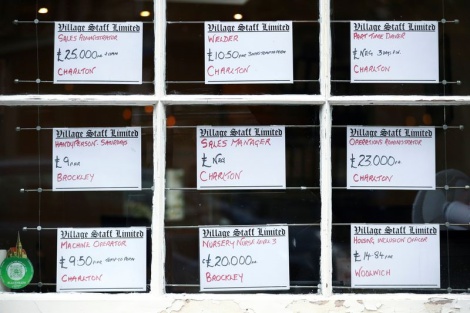 Village Staff Limited
SALES ADMINISTRATOR
£25,000
CHARLTON
Village Staff Limited
WELDER
£10.50
CHARLTON
Village Staff Limited
PART TIME DRIVER
£NEG
CHARLTON
Village Staff Limited
HANDYPERSON SATURDAYS
£9
BROCKLEY
Village Staff Limited
SALES MANAGER
£NEG
CHARLTON
Village Staff Limited
OPERATIONS ADMINISTRATOR
£23,000
CHARLTON
Village Staff Limited
MACHINE OPERATOR
£9.50
CHARLTON
Village Staff Limited
NURSERY NURSE LEVEL 3
£20,000
BROCKLEY
Village Staff Limited
HOUSING INCLUSION OFFICER
£14.84
WOOLWICH